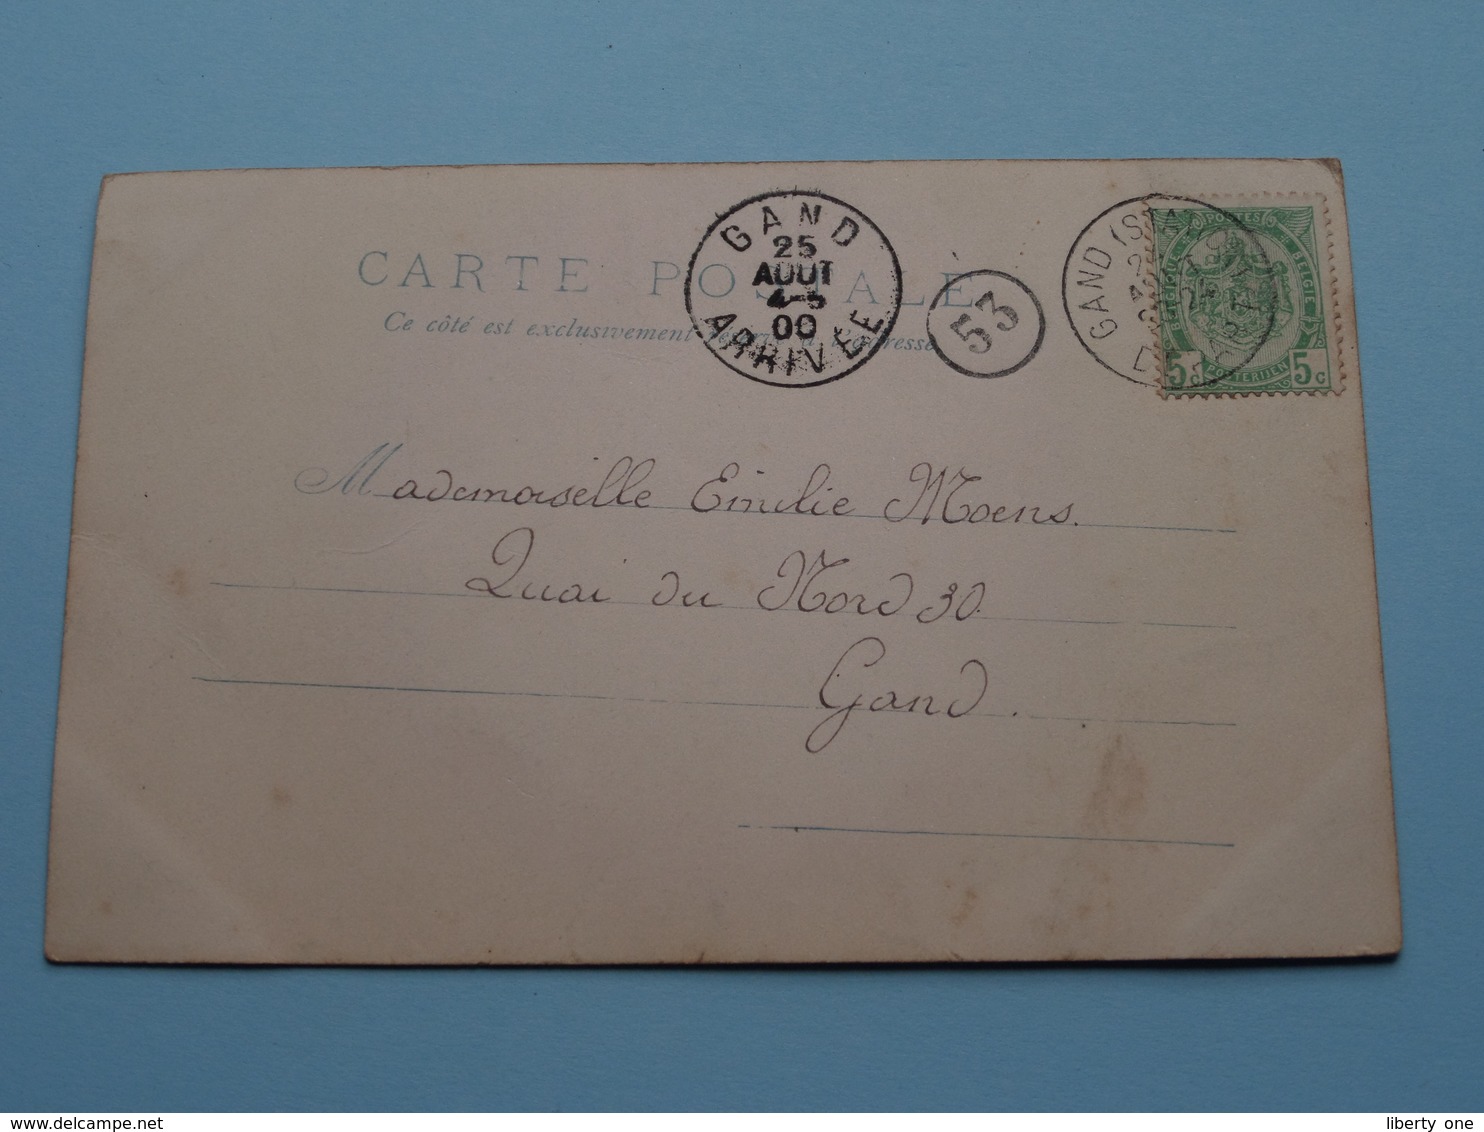 CARTE POSTALE
Ce côté est exclusivement réservé à l'adresse
GAND
25
AOUT
4-5
00
ARRIVÉE
53
GAND (STA
DÉPART
POSTES
BELGIQUE
BELGIE
POSTERIJEN
5 5 c
Mademoiselle Emilie Moens.
Quai du Nord 30.
Gand.
www.delcampe.net
liberty one